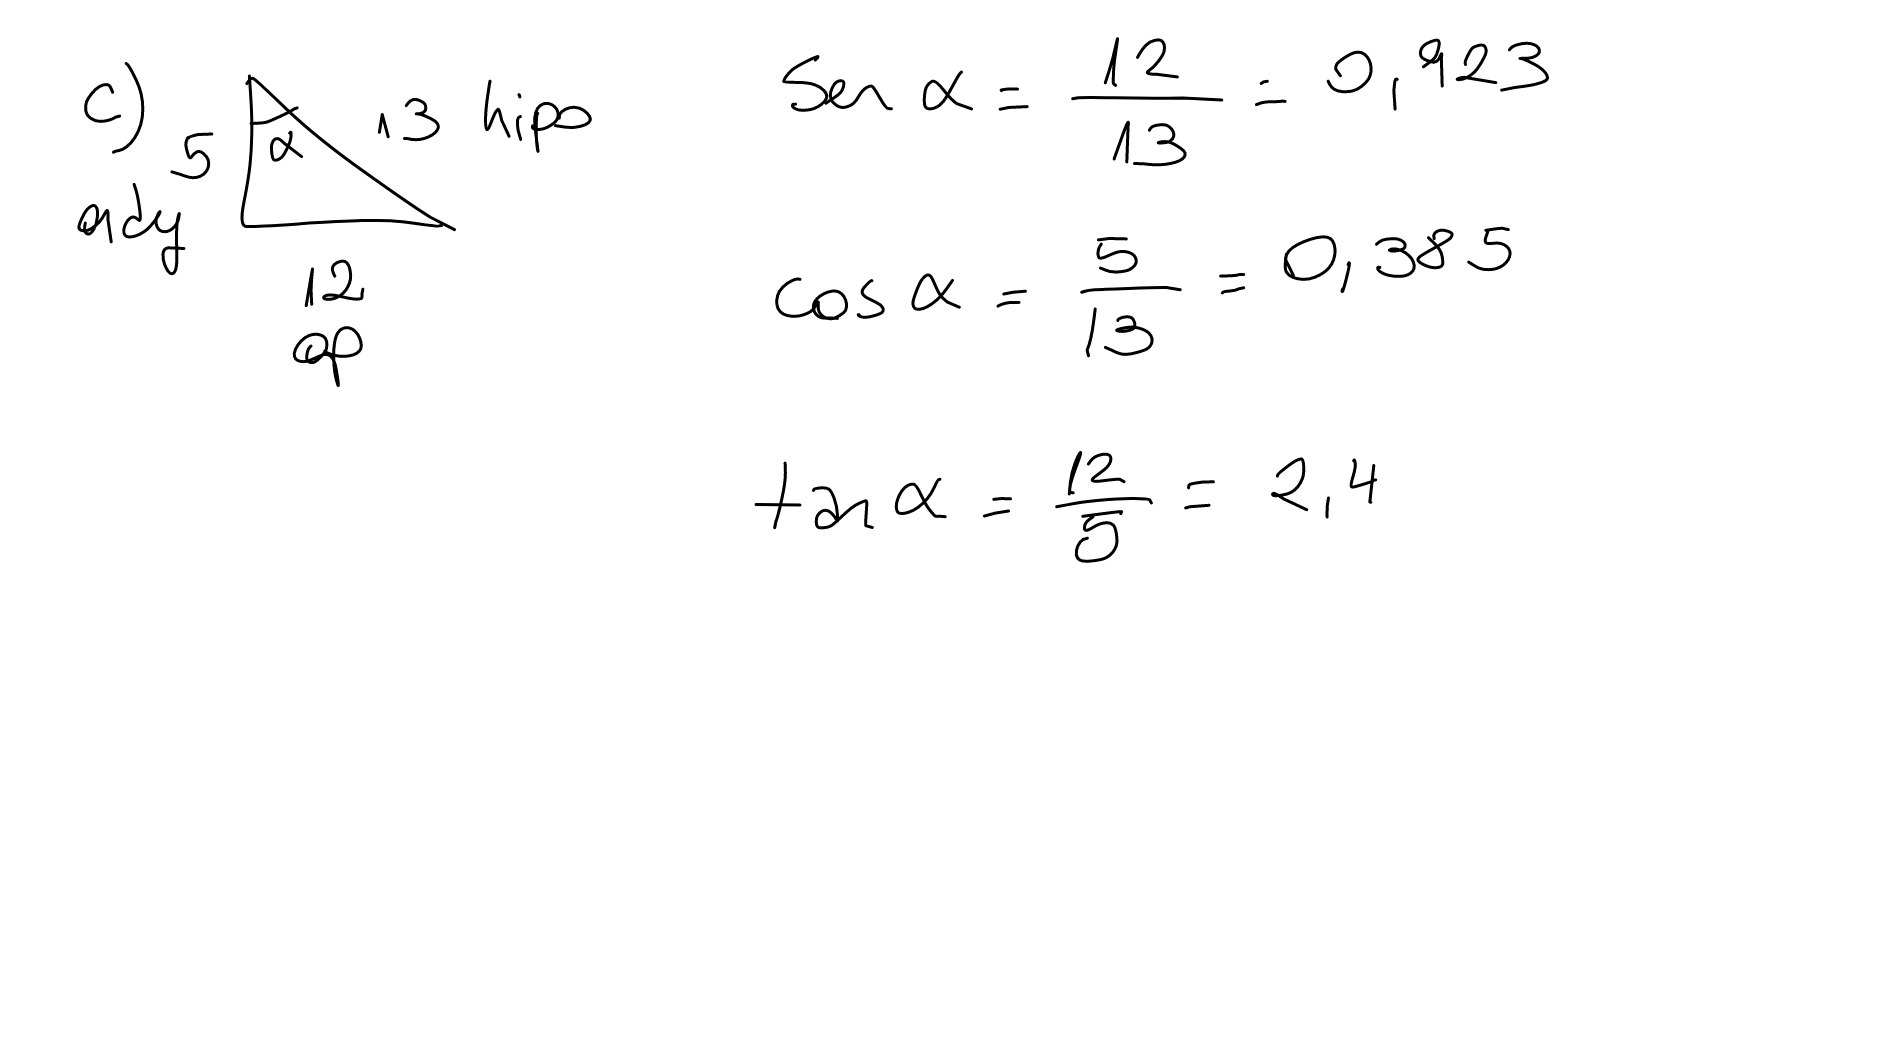 c)
5
α
13 hipo
ady
12
op
Sen α = 12/13 = 0,923
cos α = 5/13 = 0,385
tan α = 12/5 = 2,4